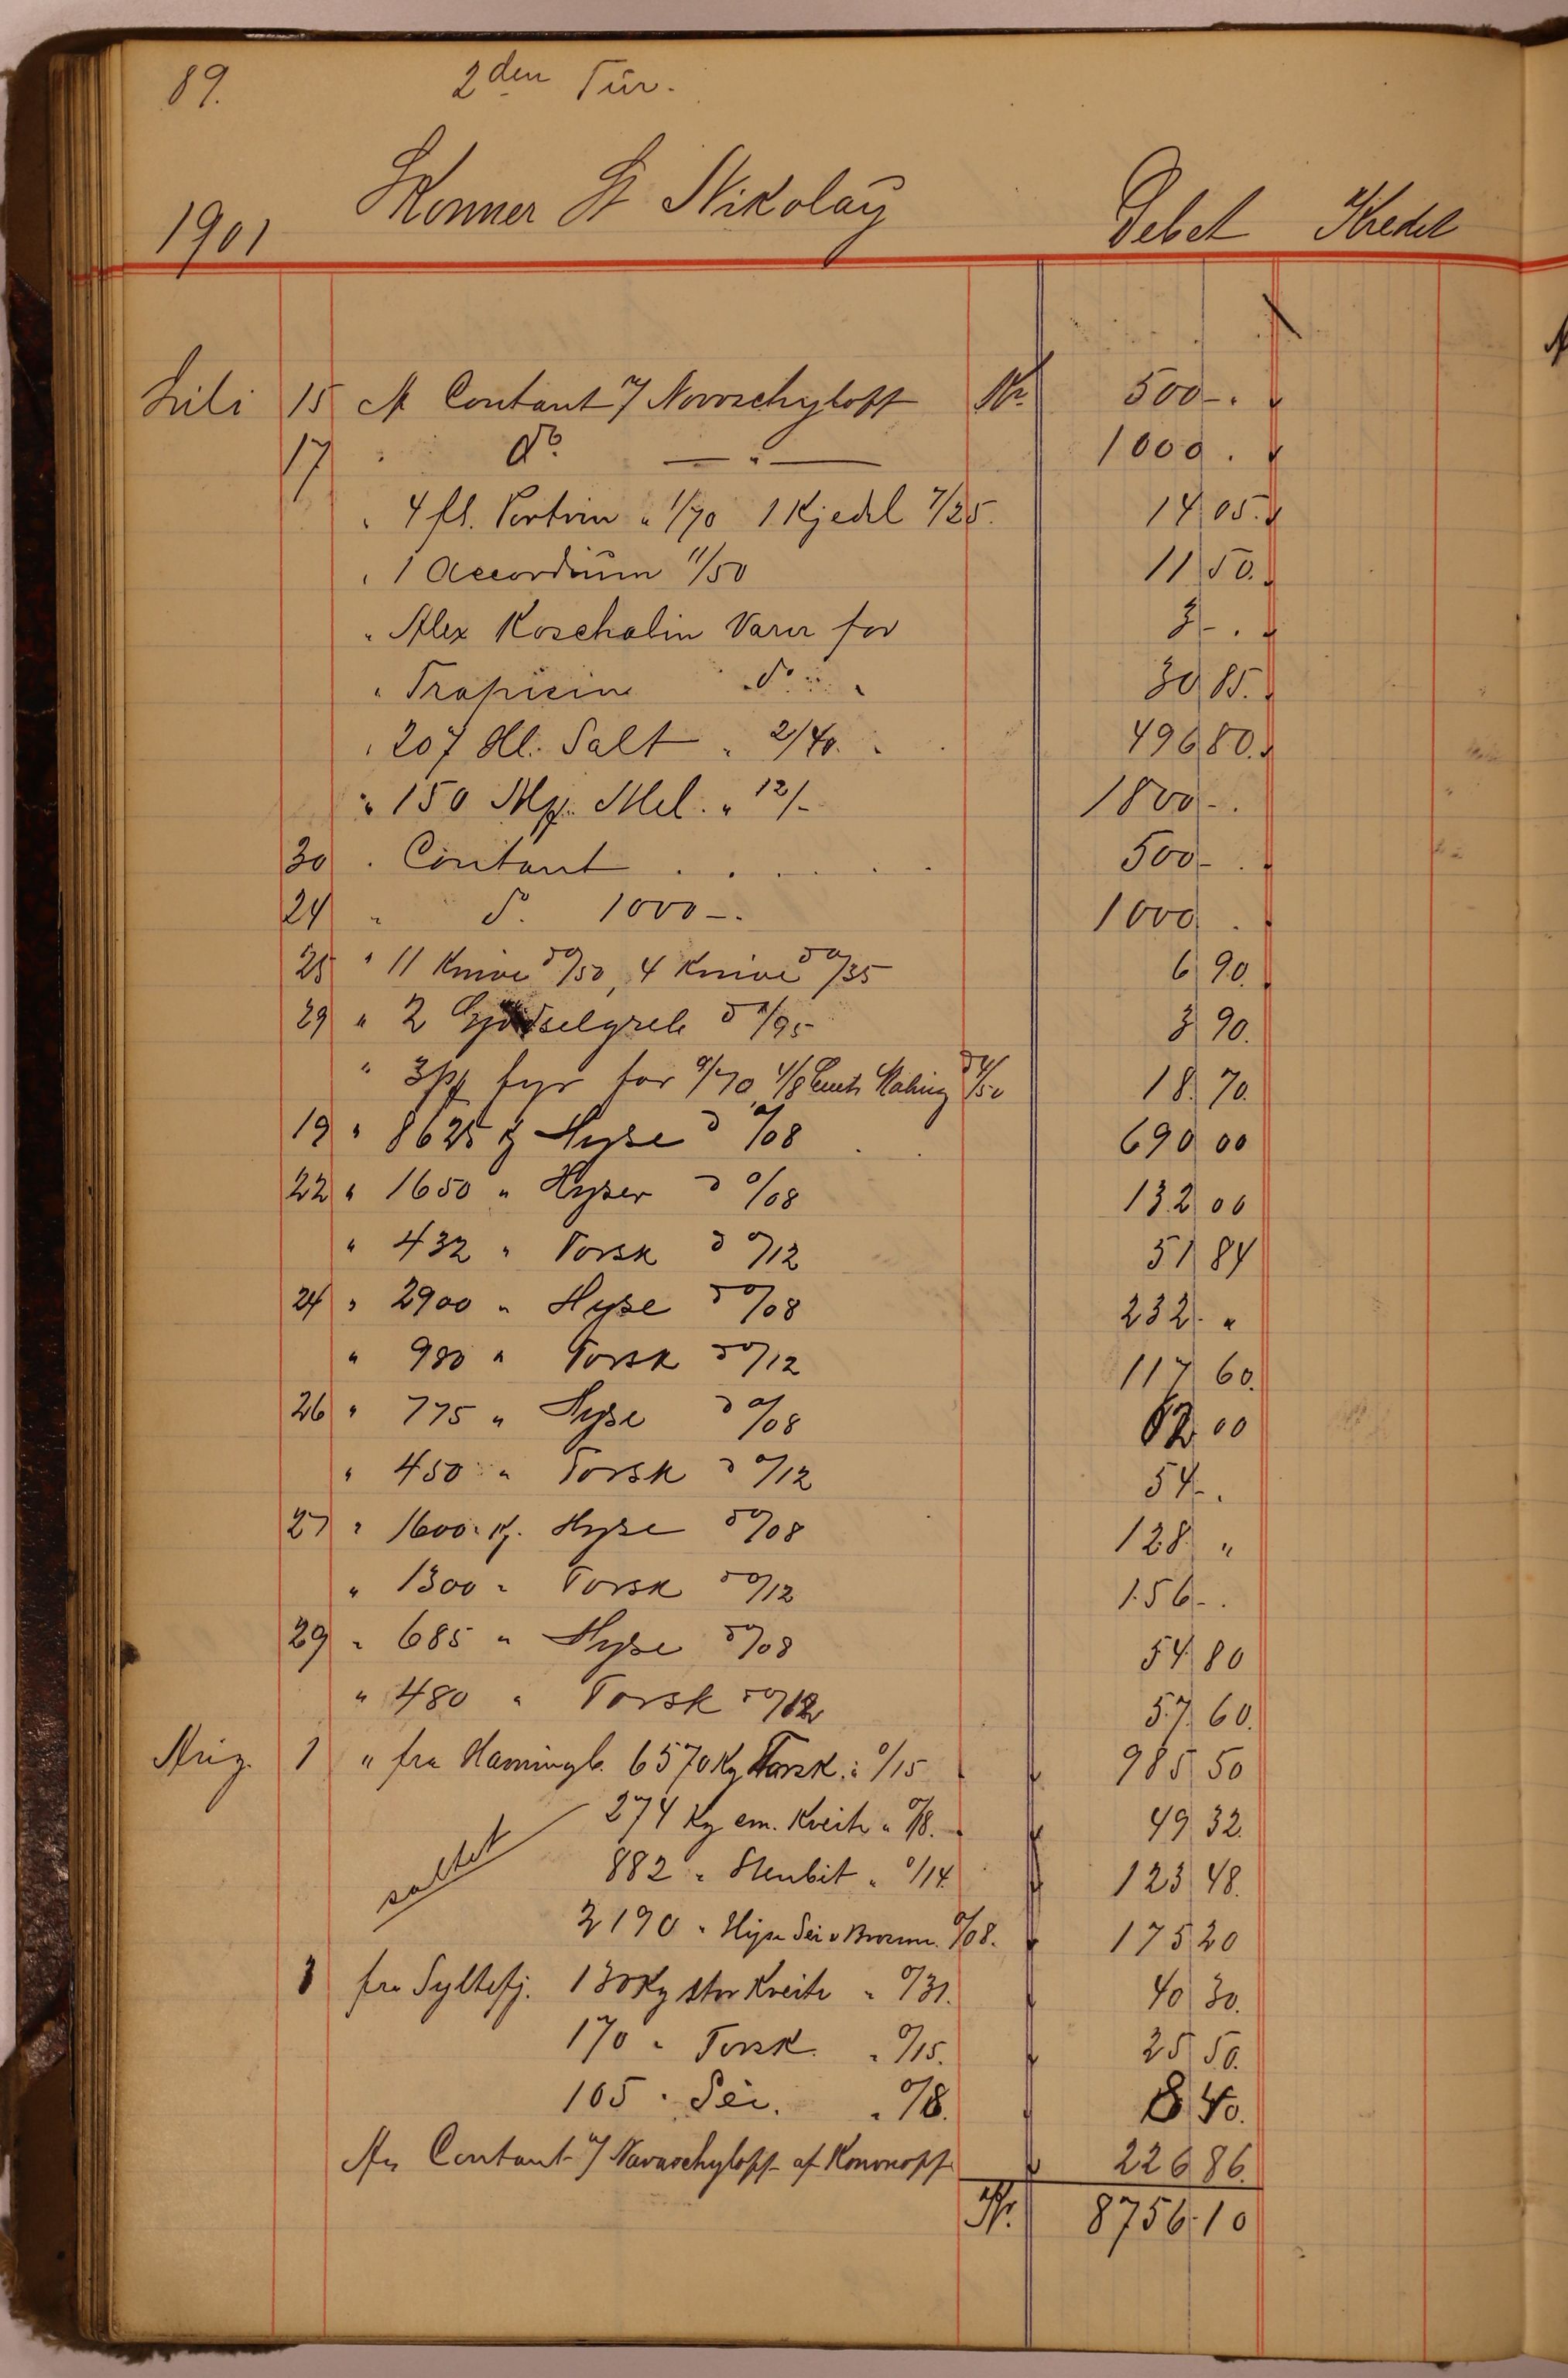 89. 2den Tür.
1901 Skonner St Nikolaÿ Debet Kredit
Juli 15 A Contant v/ Novoschyloff Kr. 500-.
17 " do. — " — 1000.
" 4 fl. Portvin " 1/70 1 Kjedel 7/25. 14 05.
" 1 Accordium 11/50 11 50.
" Alex Koschalin Varer for 3-.
" Trapisin do " 30 85.
" 207 Hl. Salt " 2/40. 496 80.
" 150 Mp. Mel. " 12/- 1800-.
30 " Contant 500-.
24 " do. 1000-. 1000.
25 " 11 Knive à 0/50, 4 Knive à 0/35 6 90.
29 " 2 Gjødselgreb à 1/95 3 90.
" 3 for 0/70 à 4/50 18 70.
19 " 8625 kg Hyse à 0/08 690 00
22 " 1650 " Hyser à 0/08 132 00
" 432 " Torsk à 0/12 51 84
24 " 2900 " Hyse à 0/08 232 "
" 980 " Torsk à 0/12 117 60.
26 " 775 " Hyse à 0/08 62 00
" 450 " Torsk à 0/12 54-.
27 " 1600 kg. Hyse à 0/08 128 "
" 1300 " Torsk à 0/12 156-.
29 " 685 " Hyse à 0/08 54 80
" 480 " Torsk à 0/12 57 60.
Aug. 1 " fra Havningb. 6570 Kg Torsk " 0/15 985 50
274 Kg em. Kveite " 0/18. 49 32.
saltet 882 " Stenbit " 0/14 123 48.
2190 " Hyse Sei o Brosme. 0/08. 175 20
3 fra Syltefj. 130 Kg stor Kveite " 0/31. 40 30.
170 " Torsk. " 0/15. 25 50.
105 " Sei. " 0/8. 8 40.
An Contant v/ Navaschyloff af Kononoff 226 86.
Kr. 8756.10